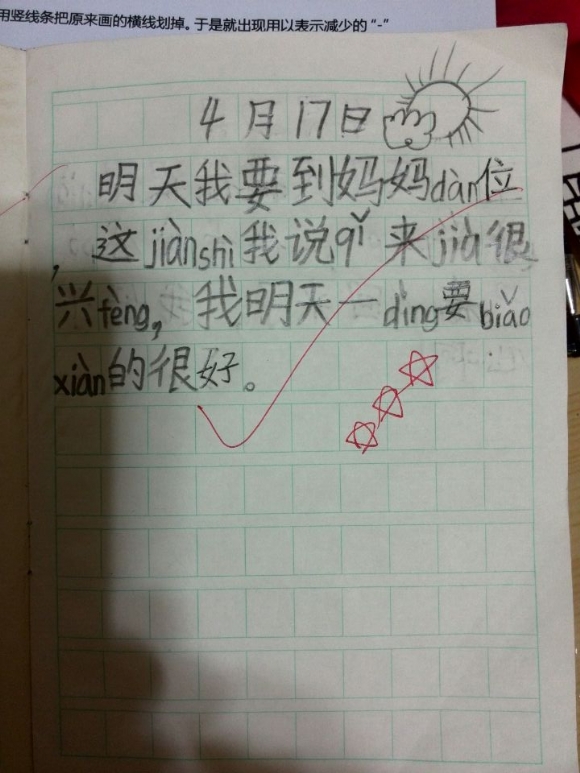 用竖线条把原来画的横线划掉。于是就出现用以表示减少的“-”
4月17日
明天我要到妈妈dàn位
，这jiànshì我说qǐ来jiù很
兴fèng，我明天一dìng要biǎo
xiàn的很好。